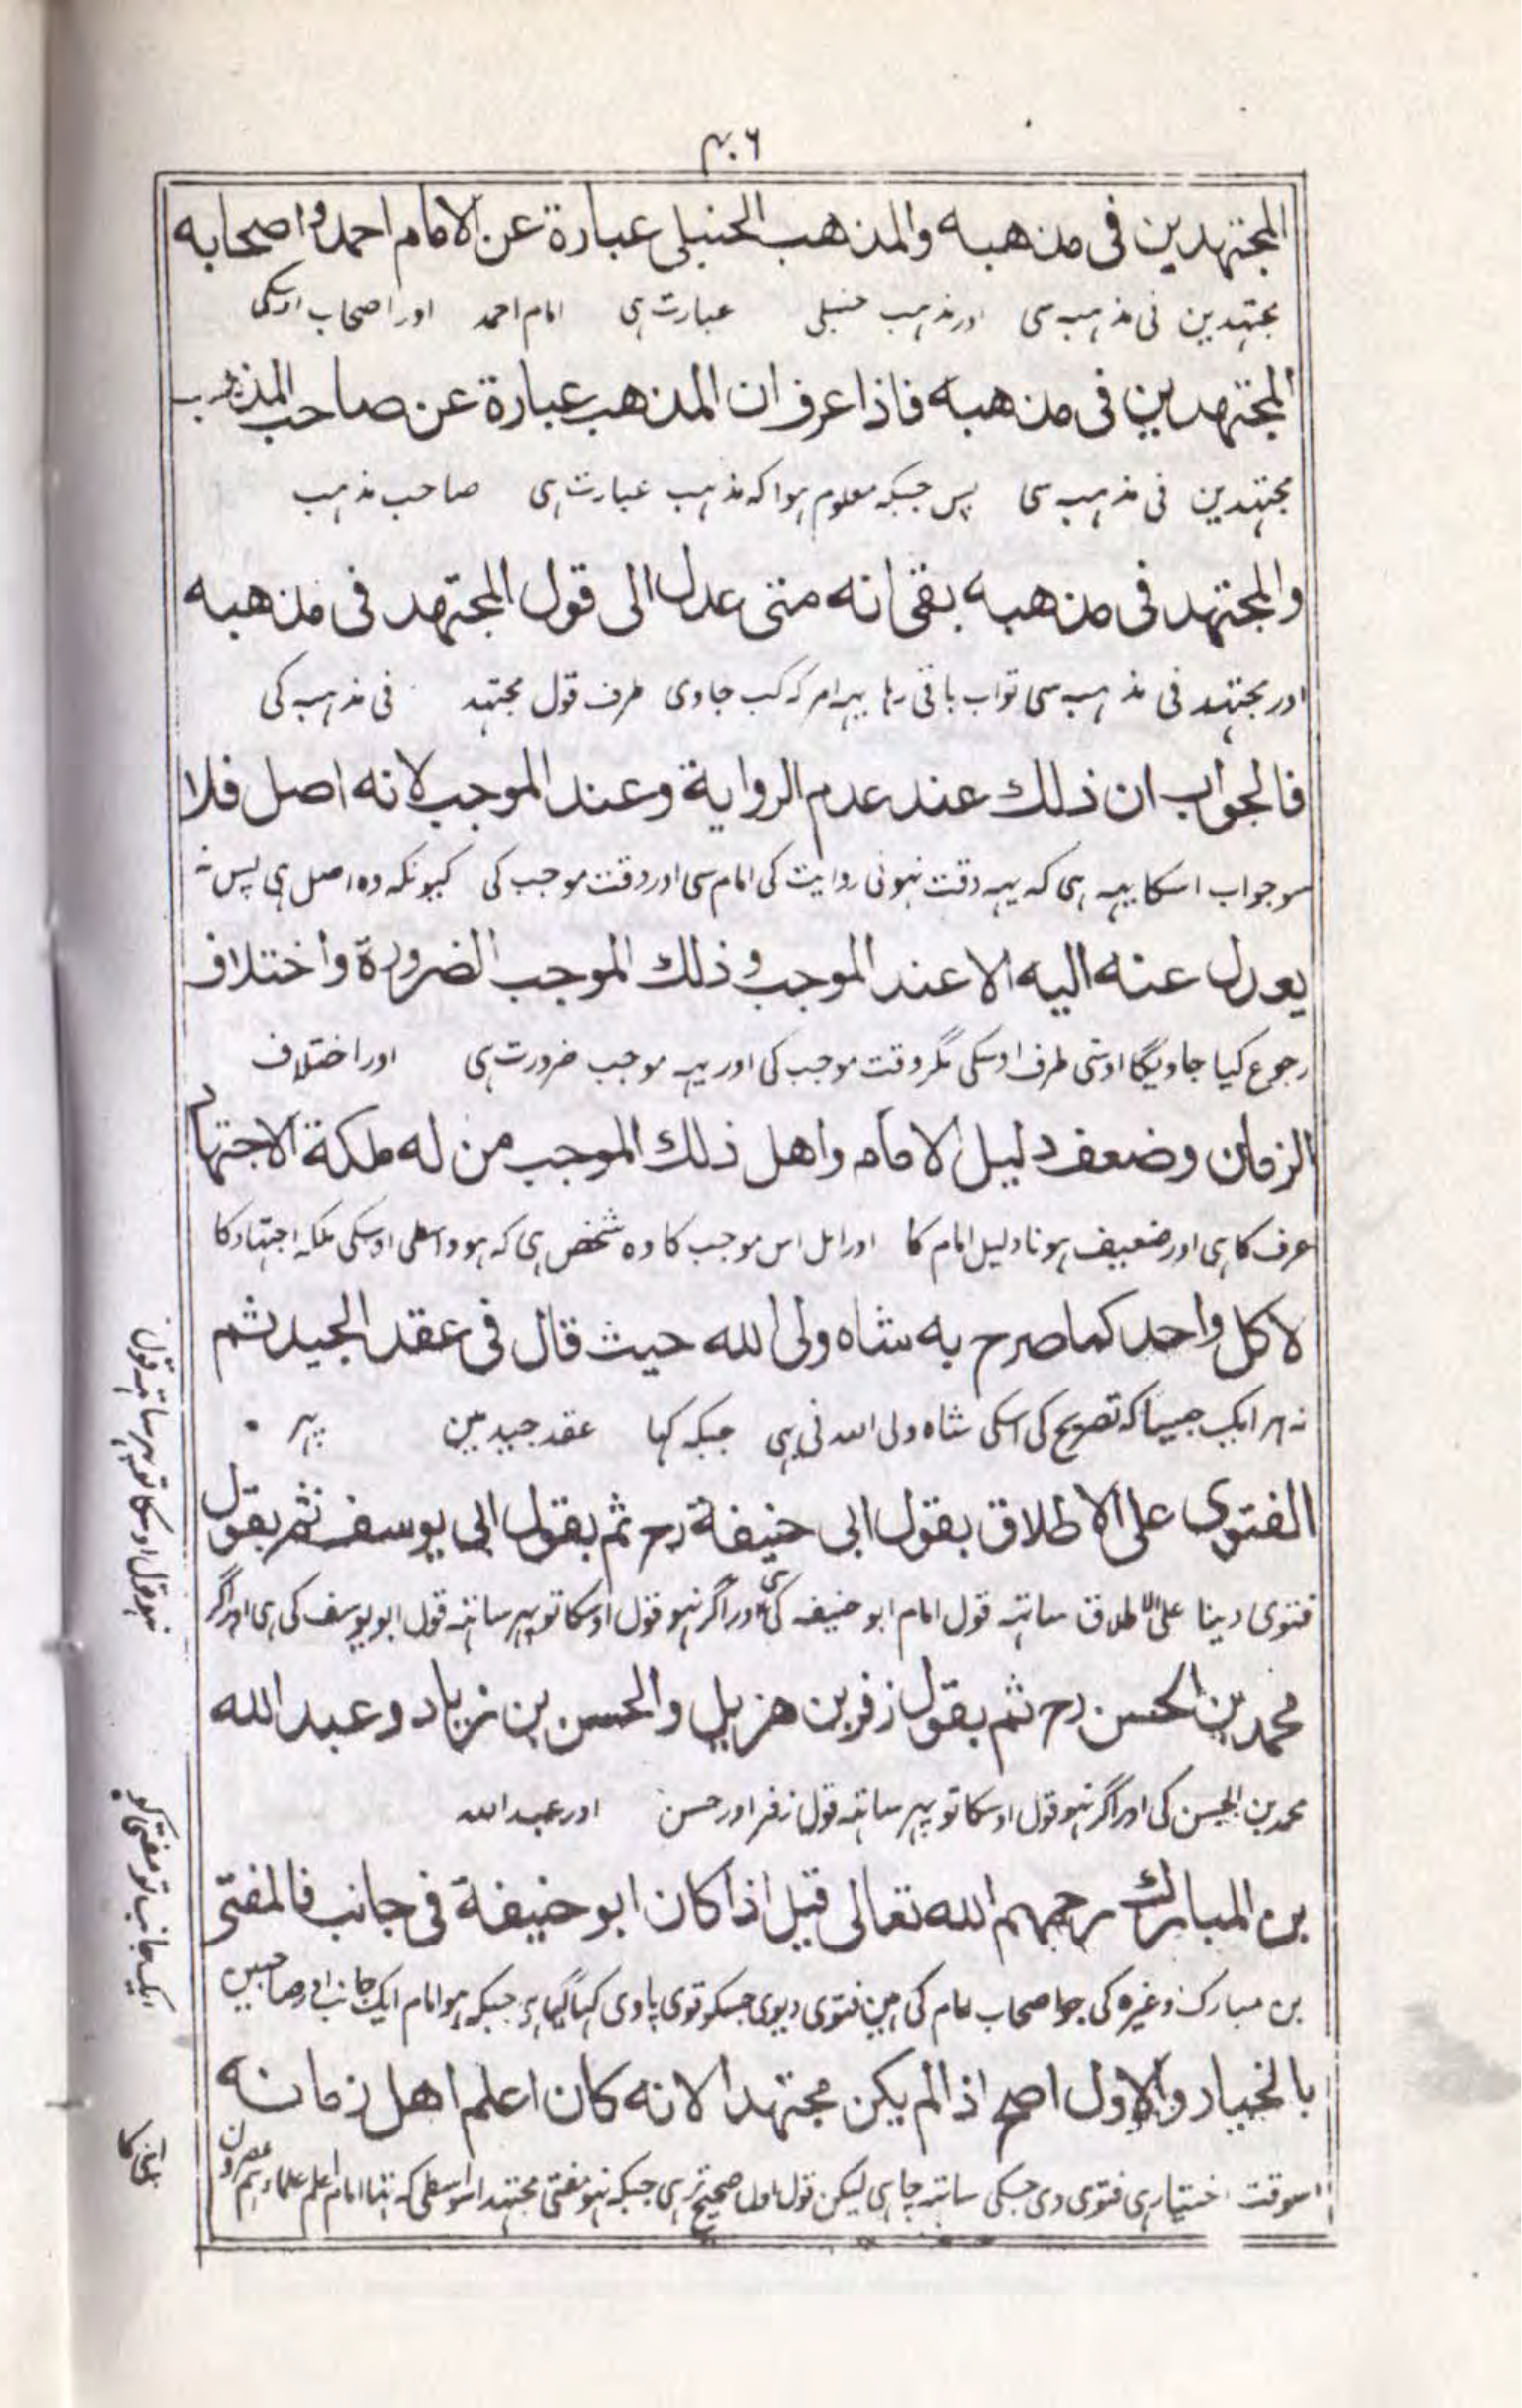 ۴۰۶
المجتهدين فى مذهبه والمذهب الحنبلى عبارة عن الامام احمد واصحابه
مجتہدین فی مذہب سی اور مذہب حنبلی عبارت ہی امام احمد اور اصحاب اوسکی
المجتهدين فى مذهبه فاذا عرف ان المذهب عبارة عن صاحب المذهب
مجتہدین فی مذہب سی پس جبکہ معلوم ہوا کہ مذہب عبارت ہی صاحب مذہب
والمجتهد فى مذهبه بقى انه متى عدل الى قول المجتهد فى مذهبه
اور مجتہد فی مذہب سی تو اب باقی رہا یہہ امر کہ کب جاوی طرف قول مجتہد فی مذہب کی
فالجواب ان ذلك عند عدم الرواية وعند الموجب لانه اصل فلا
سو جواب اسکا یہہ ہی کہ یہہ وقت نہونی روایت کی امام سی اور وقت موجب کی کیونکہ وہ اصل ہی پس نہ
يعدل عنه اليه الا عند الموجب و ذلك الموجب الضرورة واختلاف
رجوع کیا جاویگا اوسی طرف اوسکی مگر وقت موجب کی اور یہہ موجب ضرورت ہی اور اختلاف
الزمان وضعف دليل الامام واهل ذلك الموجب من له ملكة الاجتهاد
عرف کا ہی اور ضعیف ہونا دلیل امام کا اور اہل اس موجب کا وہ شخص ہی کہ ہو واسطی اوسکی ملکہ اجتہاد کا
لا كل واحد كما صرح به شاه ولى الله حيث قال فى عقد الجيد ثم
نہ ہر ایک جیسا کہ تصریح کی اسکی شاہ ولی اللہ نی بہی جبکہ کہا عقد جید مین پہر
الفتوى على الاطلاق بقول ابى حنيفة رح ثم بقول ابى يوسف ثم بقول
فتوی دینا علی الاطلاق ساتہہ قول امام ابو حنیفہ کی ہی اور اگر نہو قول اوسکا تو پہر ساتہہ قول ابو یوسف کی ہی اور اگر
نہو قول اوسکا تو پہر ساتہہ قول
محمد بن الحسن رح ثم بقول زفر بن هزيل والحسن بن زياد وعبد الله
محمد بن الحسن کی اور اگر نہو قول اوسکا تو پہر ساتہہ قول زفر اور حسن اور عبد اللہ
بن المبارك رحمهم الله تعالى قيل اذا كان ابو حنيفة فى جانب فالمفتى
بن مبارک وغیرہ کی جو اصحاب امام کی ہین فتوی دیوی جسکو قوی پاوی کہا گیا ہی جبکہ ہو امام ایک جانب اور صاحبین
ایک جانب تو مفتی کو
بالخيار والاول اصح اذا لم يكن مجتهدا لانه كان اعلم اهل زمانه
اسوقت اختیار ہی فتوی دی جسکی ساتہہ چاہی لیکن قول اول صحیح تر ہی جبکہ نہو مفتی مجتہد اسواسطی کہ تہا امام اعلم علماء ہم عصرون